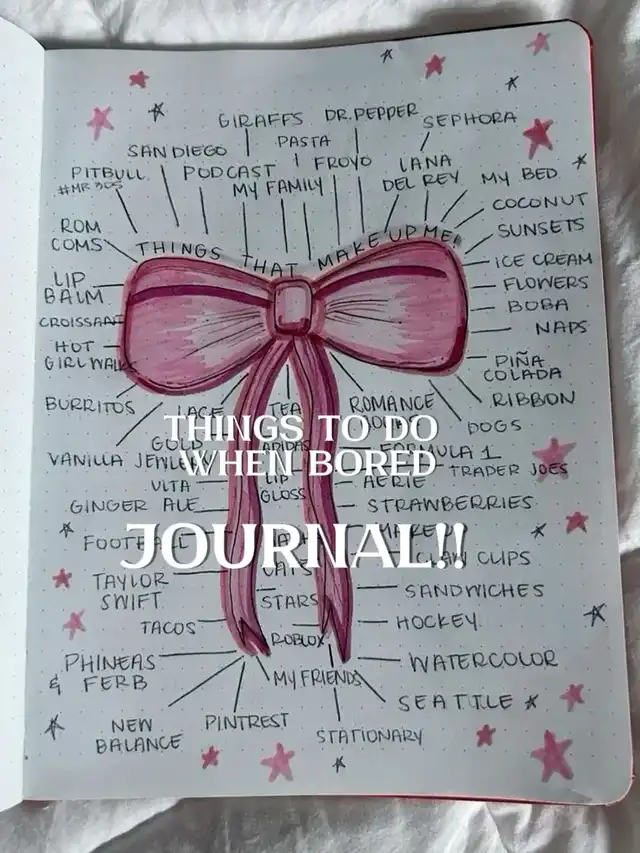 GIRAFFS
DR.PEPPER
SEPHORA
SAN DIEGO
PASTA
PITBULL
#MR 305
PODCAST
FROYO
LANA
DEL REY
MY FAMILY
MY BED
COCONUT
SUNSETS
ROM
COMS
THINGS THAT MAKE UP ME!
ICE CREAM
LIP
BALM
FLOWERS
BOBA
CROISSANT
NAPS
HOT
GIRL WALK
PIÑA
COLADA
BURRITOS
LACE
TEA
ROMANCE
RIBBON
DOGS
THINGS TO DO
WHEN BORED
GOLD
JEWELRY
VANILLA
ADIDAS
FORMULA 1
TRADER JOES
VITA
LIP
GLOSS
AERIE
GINGER ALE
STRAWBERRIES
JOURNAL!!
CLAW CLIPS
TAYLOR
SWIFT
CATS
STARS
SANDWICHES
TACOS
ROBLOX
HOCKEY
PHINEAS
& FERB
MY FRIENDS
WATERCOLOR
SEATTLE
NEW
BALANCE
PINTREST
STATIONARY